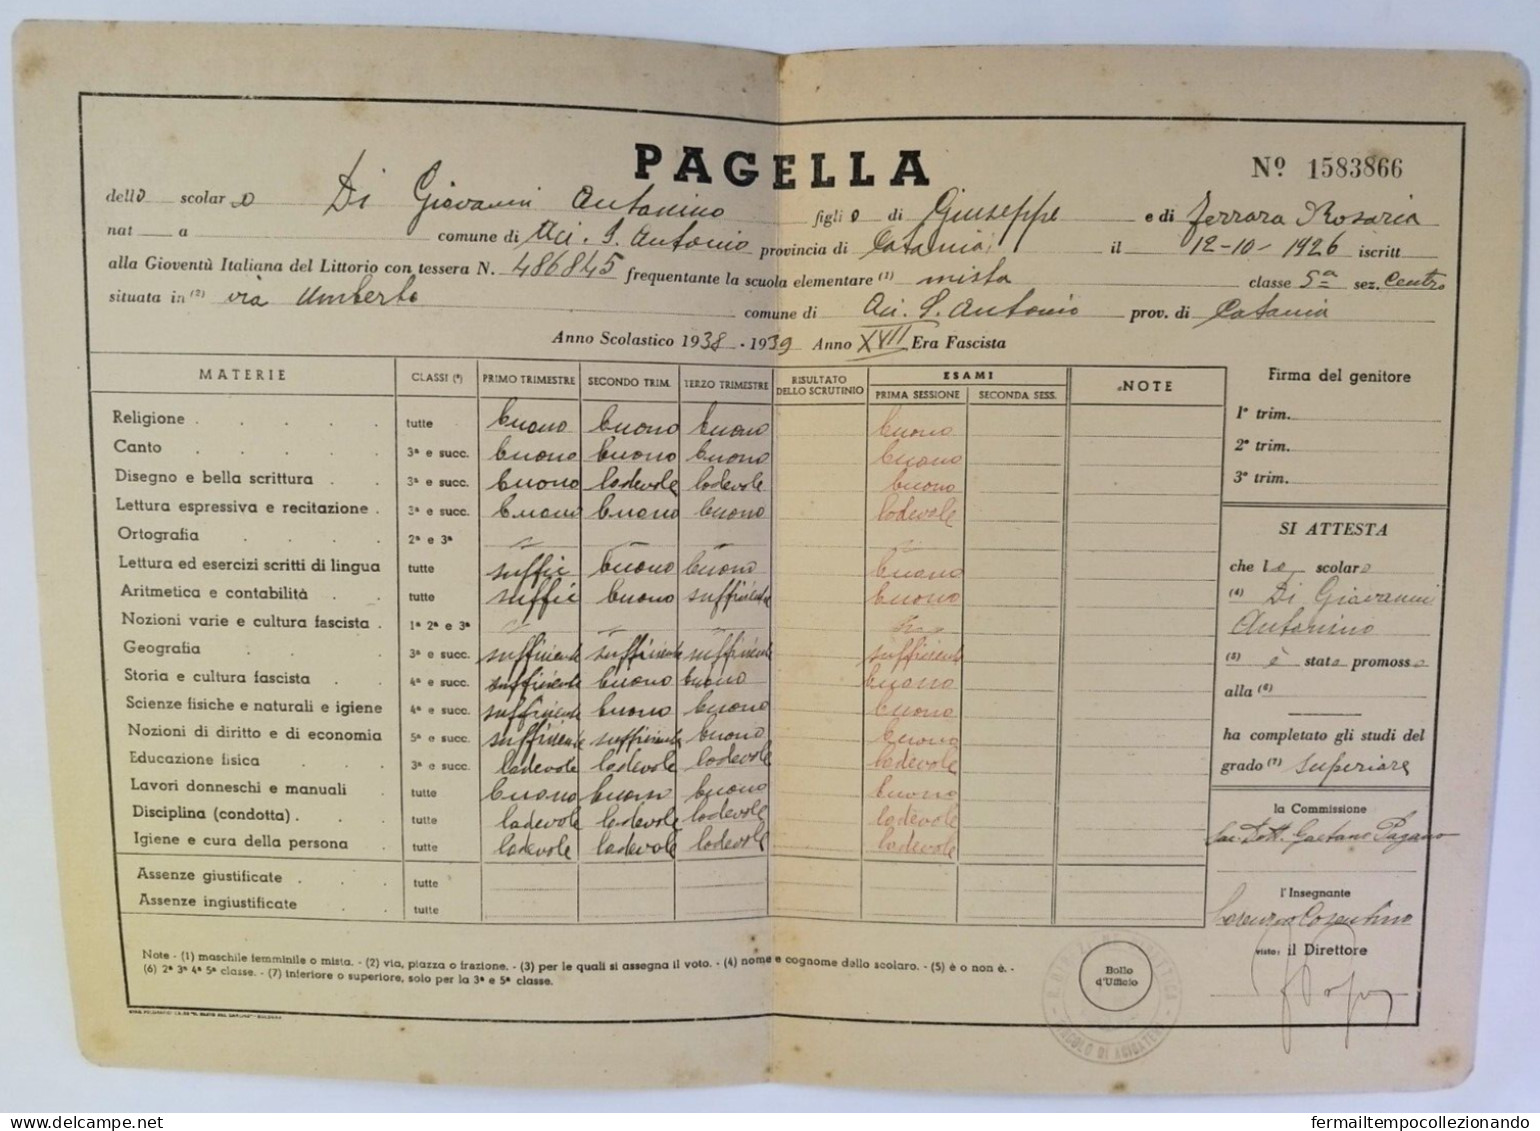 PAGELLA
Nº 1583866
dello scolaro Di Giovanni Antonino figlio di Giuseppe e di Ferrara Rosaria
nat a comune di Aci. S. Antonio provincia di Catania il 12-10-1926 iscritt
alla Gioventù Italiana del Littorio con tessera N. 486845 frequentante la scuola elementare (1) mista classe 5ª sez. Centro
situata in (2) via Umberto comune di Aci. S. Antonio prov. di Catania
Anno Scolastico 1938 - 1939 Anno XVII Era Fascista
MATERIE CLASSI (³) PRIMO TRIMESTRE SECONDO TRIM. TERZO TRIMESTRE RISULTATO DELLO SCRUTINIO ESAMI PRIMA SESSIONE SECONDA SESS. NOTE
Religione tutte buono buono buono buono
Canto 3ª e succ. buono buono buono buono
Disegno e bella scrittura 3ª e succ. buono lodevole lodevole buono
Lettura espressiva e recitazione 3ª e succ. buono buono buono lodevole
Ortografia 2ª e 3ª
Lettura ed esercizi scritti di lingua tutte suffic buono buono buono
Aritmetica e contabilità tutte suffic buono sufficiente buono
Nozioni varie e cultura fascista 1ª 2ª e 3ª
Geografia 3ª e succ. sufficiente sufficiente sufficiente sufficiente
Storia e cultura fascista 4ª e succ. sufficiente buono buono buono
Scienze fisiche e naturali e igiene 4ª e succ. sufficiente buono buono buono
Nozioni di diritto e di economia 5ª e succ. sufficiente sufficiente buono buono
Educazione fisica 3ª e succ. lodevole lodevole lodevole lodevole
Lavori donneschi e manuali tutte buono buono buono buono
Disciplina (condotta) tutte lodevole lodevole lodevole lodevole
Igiene e cura della persona tutte lodevole lodevole lodevole lodevole
Assenze giustificate tutte
Assenze ingiustificate tutte
Firma del genitore
1º trim.
2º trim.
3º trim.
SI ATTESTA
che lo scolaro
(4) Di Giovanni
Antonino
(5) è stato promosso
alla (6)
ha completato gli studi del
grado (7) superiore
la Commissione
Sac. Dott. Gaetano Pagano
l'Insegnante
Lorenzo Cosentino
visto: il Direttore
Note - (1) maschile femminile o mista. - (2) via, piazza o frazione. - (3) per le quali si assegna il voto. - (4) nome e cognome dello scolaro. - (5) è o non è. -
(6) 2ª 3ª 4ª 5ª classe. - (7) inferiore o superiore, solo per la 3ª e 5ª classe.
Bollo
d'Ufficio
delcampe.net
fermailtempocollezionando